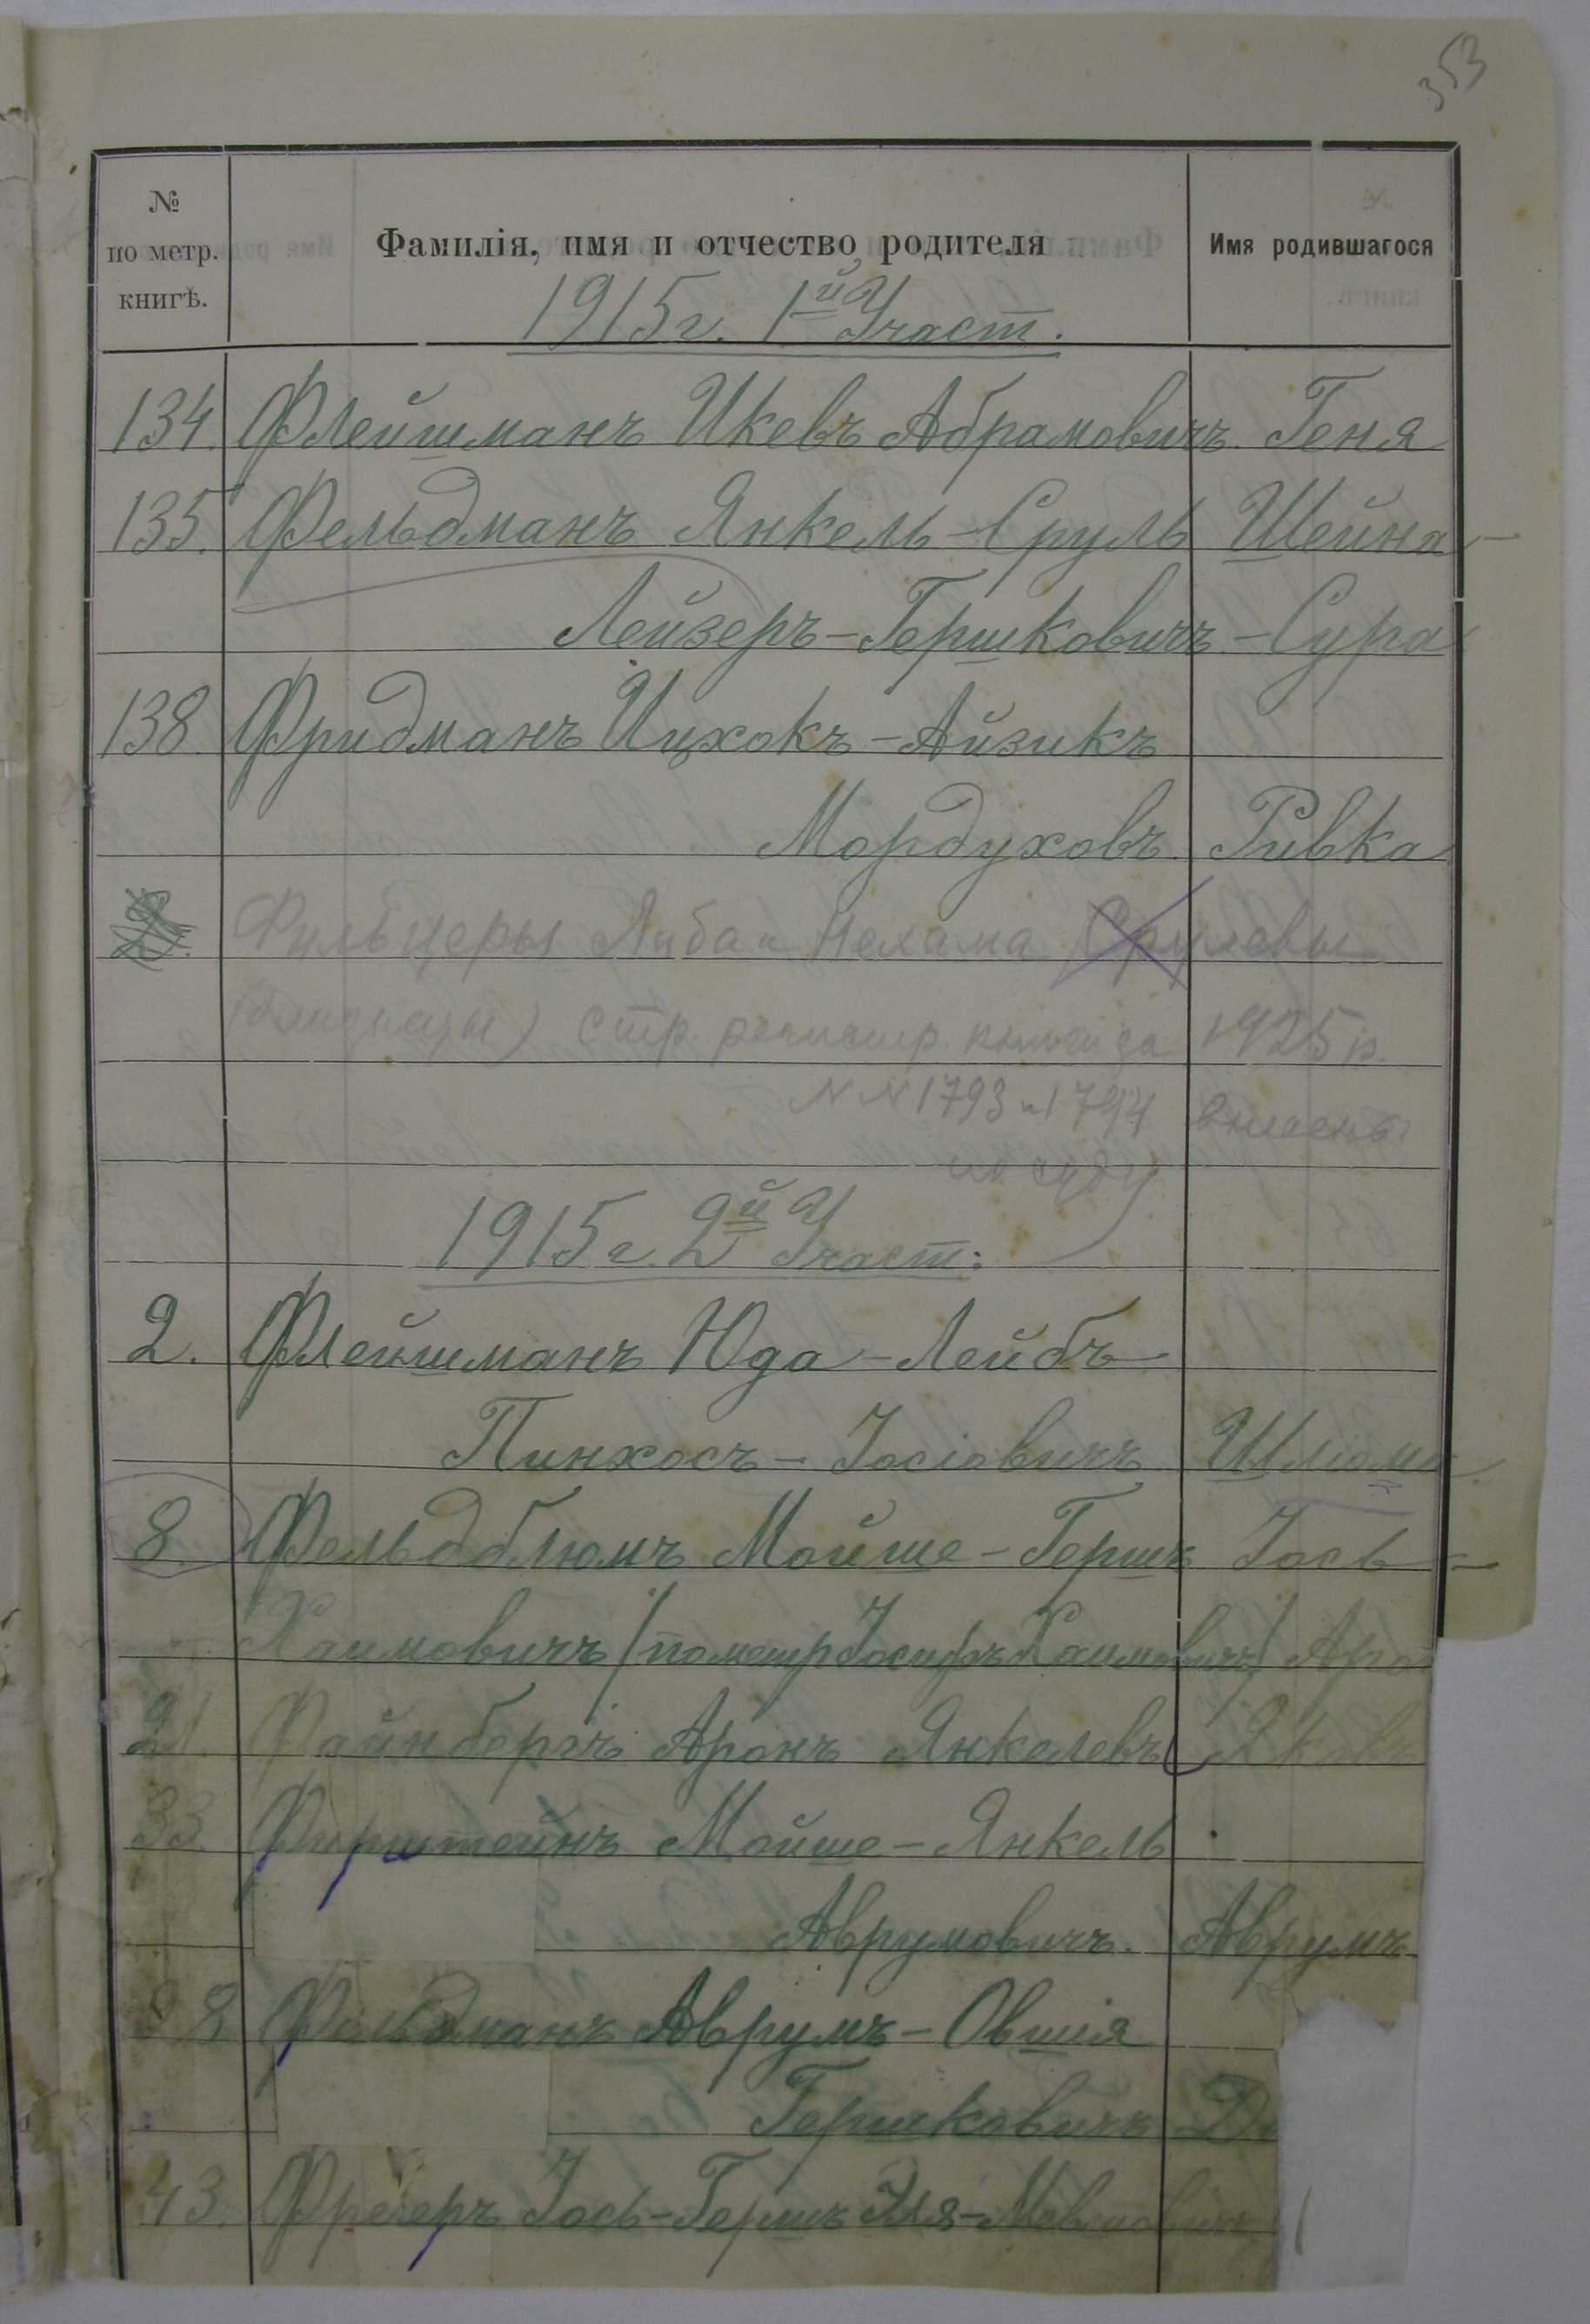 353
№ по метр. книгѣ. Фамилія, имя и отчество родителя Имя родившагося
1915 г. 1й Участ.
134. Флейшманъ Икевъ Абрамовичъ. Геня
135. Фельдманъ Янкель-Сруль Шейна-
Лейзеръ-Гершковичъ -Сура
138. Фридманъ Ицхокъ-Айзикъ
Мордуховъ Ривка
Фильцеры Либа и Нехама Срулевы
(близнецы) стр. регистр. книги за 1925 г.
NN 1793 и 1794 внесены
по суду
1915 г. 2й Участ.
2. Флейшманъ Юда-Лейбъ
Пинхосъ-Іосіовичъ Шліома
8. Фельдблюмъ Мойше-Гершъ Іось-
Хаимовичъ (по метр Іосифъ Хаимовичъ) Аро
21. Файнбергъ Аронъ Янкелевъ Яковъ
33. Фирштейнъ Мойше-Янкель
Аврумовичъ. Аврумъ
38 Фельдманъ Аврумъ-Овшія
Гершковичъ
43. Іось-Гершъ